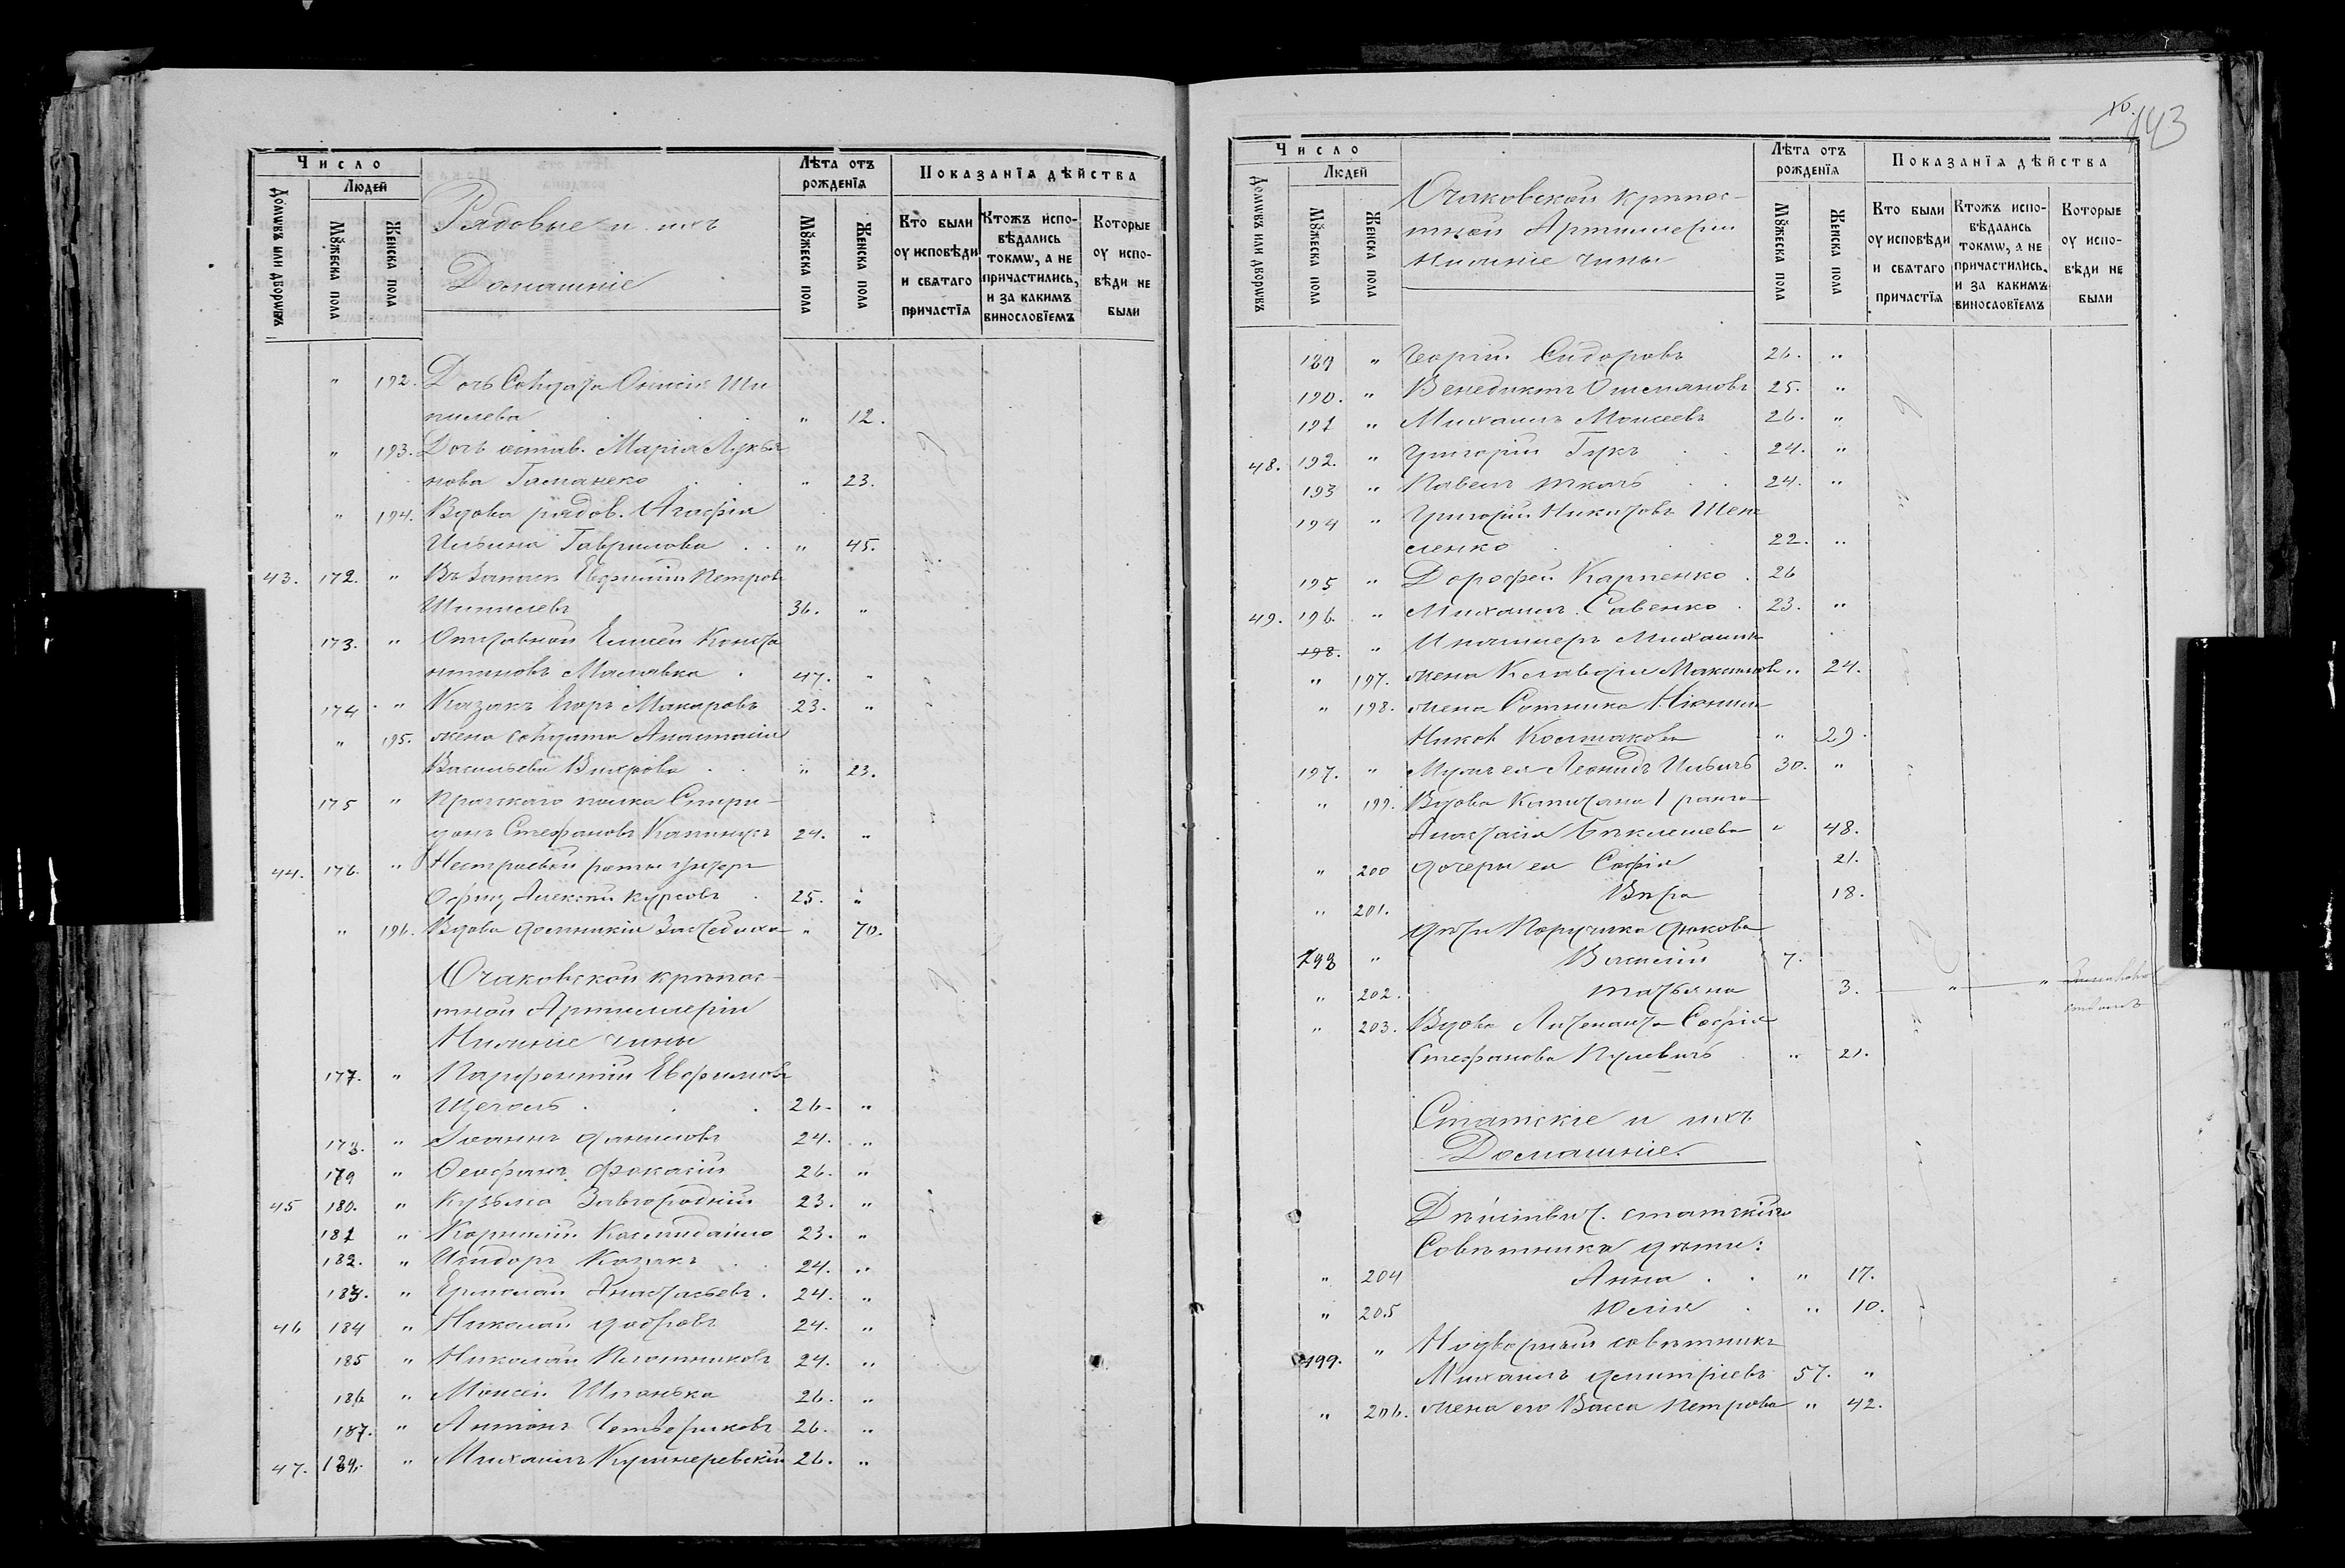 Число
Людей
Домѡвъ или дворѡвъ
Мꙋжеска пола
Женска пола
Рядовые и ихъ
Домашніе
Лѣта отъ рожденїѧ
Мꙋжеска пола
Женска пола
Показанїѧ дѣйства
Кто были оу исповѣди и свѧтаго причастїѧ
Ктожъ исповѣдались токмѡ, а не причастились, и за какимъ винословїемъ
Которые оу исповѣди не были
" 192. Дочь Солдата Ши
пилева " 12.
" 193. Дочь отстав. Марія Лукья
нова " 23.
" 194. Вдова рядов. Агафія
Ильина Гаврилова " 45.
43. 172. " Въ Запасѣ Евфимій Петров
Шипилевъ 36. "
173. " Отставной Елисей Конста
нтиновъ Малявка 47. "
174 " Казакъ Егоръ Макаровъ 23. "
" 195. жена солдата Анастасія
Васильева Вихрова " 23.
175 " Пражскаго полка Спири-
донъ Стефановъ 24. "
44. 176. " Нестроевой роты Унтеръ
Офиц Алексій Курсовъ 25. "
" 196. Вдова " 70.
Очаковской крѣпос-
тной Артиллеріи
Нижніе чины
177. " Парфентій Евфимовъ
Щеголь 26. "
178. " Іоаннъ Даниловъ 24. "
179 " Ѳеофанъ 26. "
45 180. " Кузьма Завгородній 23. "
181 " Корнилій 23. "
182. " Исидоръ Козакъ 24. "
183. " Ермолай Анастасьевъ 24. "
46 184 " Николай 24. "
185 " Николай Плотниковъ 24. "
186 " Моисей Шпонька 26. "
187. " Антонъ Четвериковъ 26. "
47. " Михаилъ Кушнеревскій 26. "
143
Число
Людей
Домѡвъ или дворѡвъ
Мꙋжеска пола
Женска пола
Очаковской крѣпос-
тной Артиллеріи
Нижніе чины
Лѣта отъ рожденїѧ
Мꙋжеска пола
Женска пола
Показанїѧ дѣйства
Кто были оу исповѣди и свѧтаго причастїѧ
Ктожъ исповѣдались токмѡ, а не причастились, и за какимъ винословїемъ
Которые оу исповѣди не были
189 " Георгій Сидоровъ 26. "
190. " Венедиктъ 25. "
191 " Михаилъ Моисеевъ 26. "
48. 192. " Григорій Гукъ 24. "
193 " Павелъ Ткачъ 24. "
194 " Григорій Никитовъ
ленко 22. "
195 " Дорофей Карпенко 26
49. 196. " Михаилъ Савенко 23. "
198. "
" 197. жена Клавдія Максимов " 24.
" 198. жена Сотника
Колпакова " 29.
197. " Мужъ ея Леонидъ Ильичъ 30. "
" 199. Вдова Капитана 1 ранга
Анастасія Беклешева " 48.
" 200 дочери ея Софія 21.
" 201. Вѣра 18.
дѣти Поручика Дюкова
198 " Василій 7.
" 202. Татьяна 3. " "
" 203. Вдова Лейтенанта Софія
Стефанова " 21.
Статскіе и ихъ
Домашніе.
Дѣйствит. статскаго
Совѣтника дѣти:
" 204 Анна " 17.
" 205 Юлія " 10.
199. " Надворный совѣтникъ
Михаилъ Димитріевъ 57. "
" 206. жена его Васса Петрова " 42.